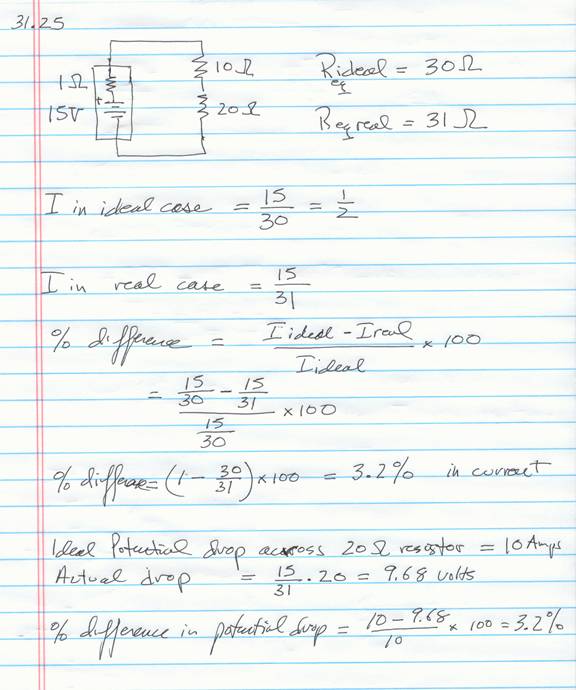 31.25
10Ω
R ideal = 30Ω
eq
1Ω
+
15V
20Ω
Req real = 31Ω
I in ideal case = 15/30 = 1/2
I in real case = 15/31
% difference = (I ideal - I real)/(I ideal) × 100
= (15/30 - 15/31)/(15/30) × 100
% differen= (1 - 30/31) × 100 = 3.2% in current
Ideal Potential drop across 20Ω resistor = 10 Amps
Actual drop = 15/31 · 20 = 9.68 volts
% difference in potential drop = (10 - 9.68)/10 × 100 = 3.2%